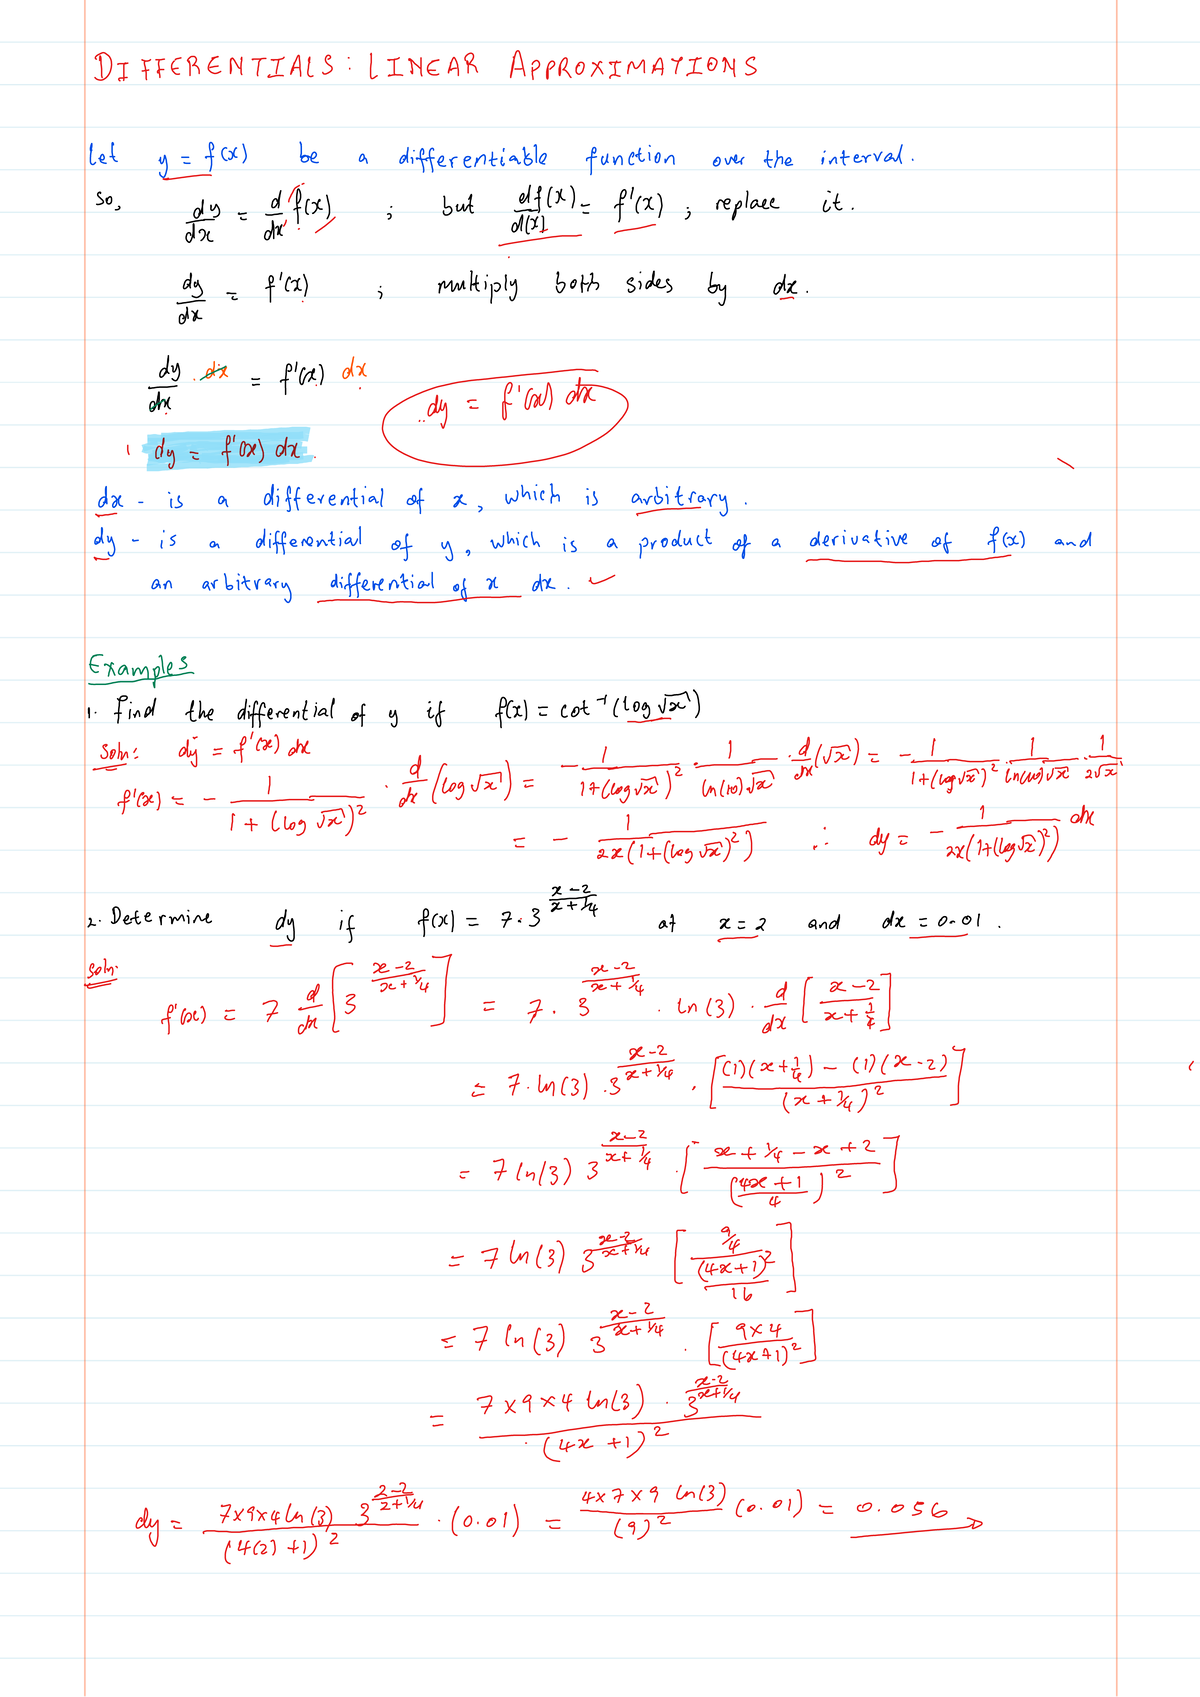 DIFFERENTIALS: LINEAR APPROXIMATIONS
Let y = f(x) be a differentiable function over the interval.
So, dy/dx = d/dx f(x) ; but df(x)/d(x) = f'(x) ; replace it.
dy/dx = f'(x) ; multiply both sides by dx.
dy/dx . dx = f'(x) dx
dy = f'(x) dx
dy = f'(x) dx.
dx - is a differential of x, which is arbitrary.
dy - is a differential of y, which is a product of a derivative of f(x) and
an arbitrary differential of x dx. ✓
Examples
1. Find the differential of y if f(x) = cot⁻¹(log √x)
Soln: dy = f'(x) dx
f'(x) = - 1/(1 + (log √x)²) . d/dx (log √x) = - 1/(1+(log √x)²) . 1/(ln(10) √x) . d/dx (√x) = - 1/(1+(log √x)²) . 1/(ln(10) √x) . 1/(2√x)
= - 1/(2x(1+(log √x)²)) ∴ dy = - 1/(2x(1+(log √x)²)) dx
2. Determine dy if f(x) = 7.3^((x-2)/(x+1/4)) at x = 2 and dx = 0.01.
Soln:
f'(x) = 7 d/dx [3^((x-2)/(x+1/4))] = 7 . 3^((x-2)/(x+1/4)) . ln(3) . d/dx [(x-2)/(x+1/4)]
= 7. ln(3) . 3^((x-2)/(x+1/4)) . [((1)(x+1/4) - (1)(x-2))/(x+1/4)²]
= 7 ln(3) 3^((x-2)/(x+1/4)) . [(x + 1/4 - x + 2)/((4x+1)/4)²]
= 7 ln(3) 3^((x-2)/(x+1/4)) [(9/4)/((4x+1)²/16)]
= 7 ln(3) 3^((x-2)/(x+1/4)) . [(9×4)/(4x+1)²]
= (7×9×4 ln(3) . 3^((x-2)/(x+1/4)))/(4x+1)²
dy = (7×9×4 ln(3) 3^((2-2)/(2+1/4)))/(4(2)+1)² . (0.01) = (4×7×9 ln(3))/(9)² (0.01) = 0.056